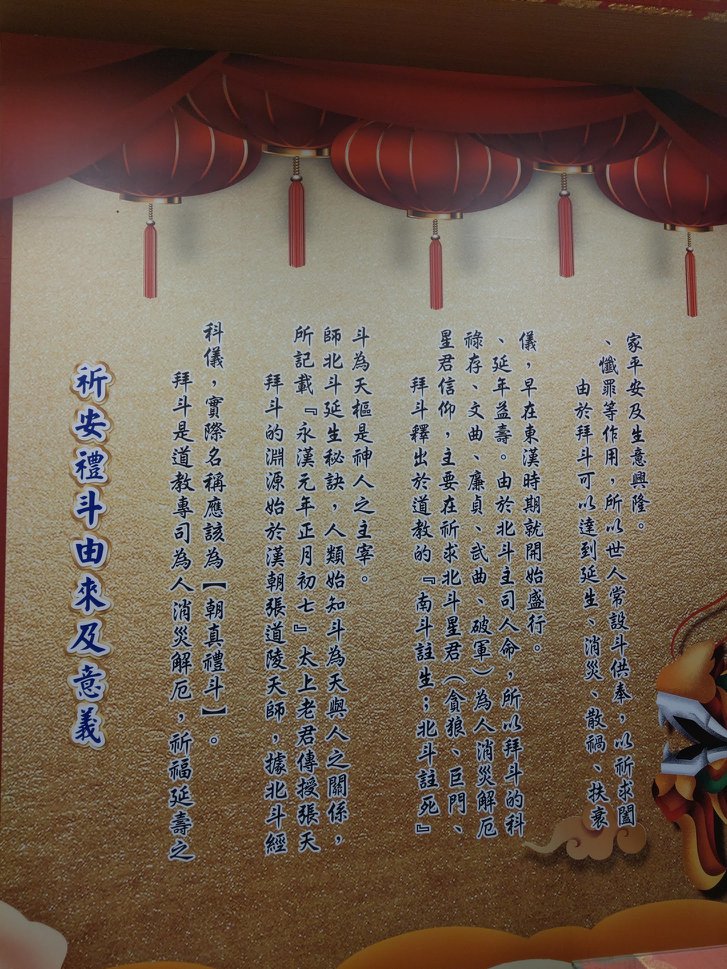 祈安禮斗由來及意義
拜斗是道教專司為人消災解厄，祈福延壽之
科儀，實際名稱應該為【朝真禮斗】。
拜斗的淵源始於漢朝張道陵天師，據北斗經
所記載『永漢元年正月初七』太上老君傳授張天
師北斗延生秘訣，人類始知斗為天與人之關係，
斗為天樞是神人之主宰。
拜斗釋出於道教的『南斗註生；北斗註死』
星君信仰，主要在祈求北斗星君（貪狼、巨門、
祿存、文曲、廉貞、武曲、破軍）為人消災解厄
、延年益壽。由於北斗主司人命，所以拜斗的科
儀，早在東漢時期就開始盛行。
由於拜斗可以達到延生、消災、散禍、扶衰
、懺罪等作用，所以世人常設斗供奉，以祈求闔
家平安及生意興隆。